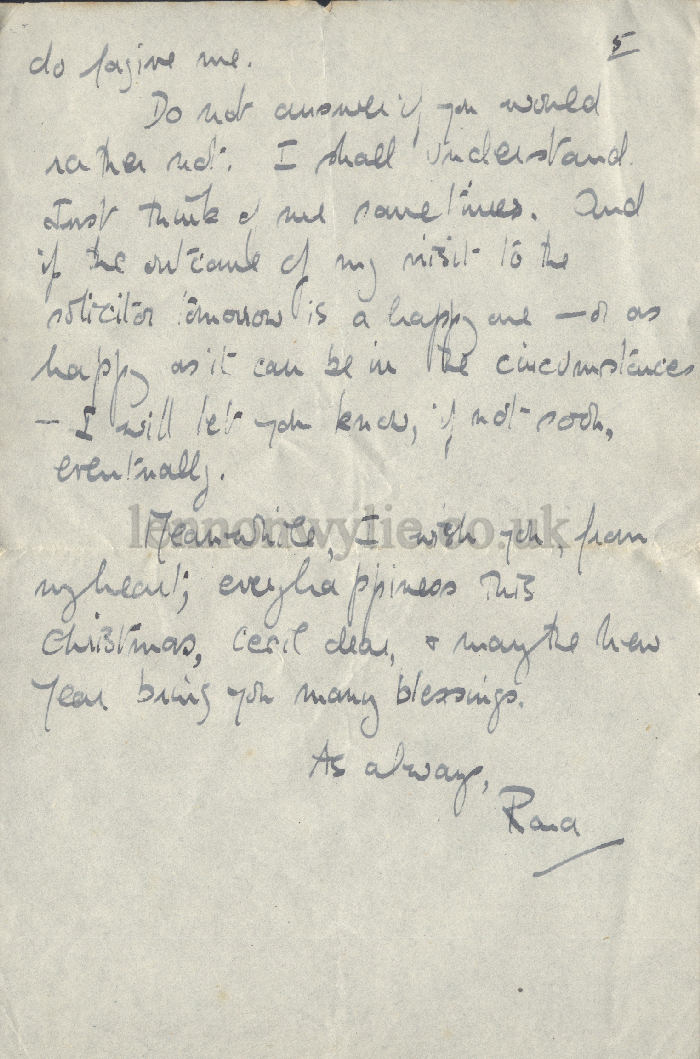 5
do forgive me.
Do not answer if you would
rather not. I shall understand.
Just think of me sometimes. And
if the outcome of my visit to the
solicitor tomorrow is a happy one — or as
happy as it can be in the circumstances
— I will let you know, if not soon,
eventually.
lennonwylie.co.uk
Meanwhile, I wish you, from
my heart, every happiness this
Christmas, Cecil dear, & may the New
Year bring you many blessings.
As always,